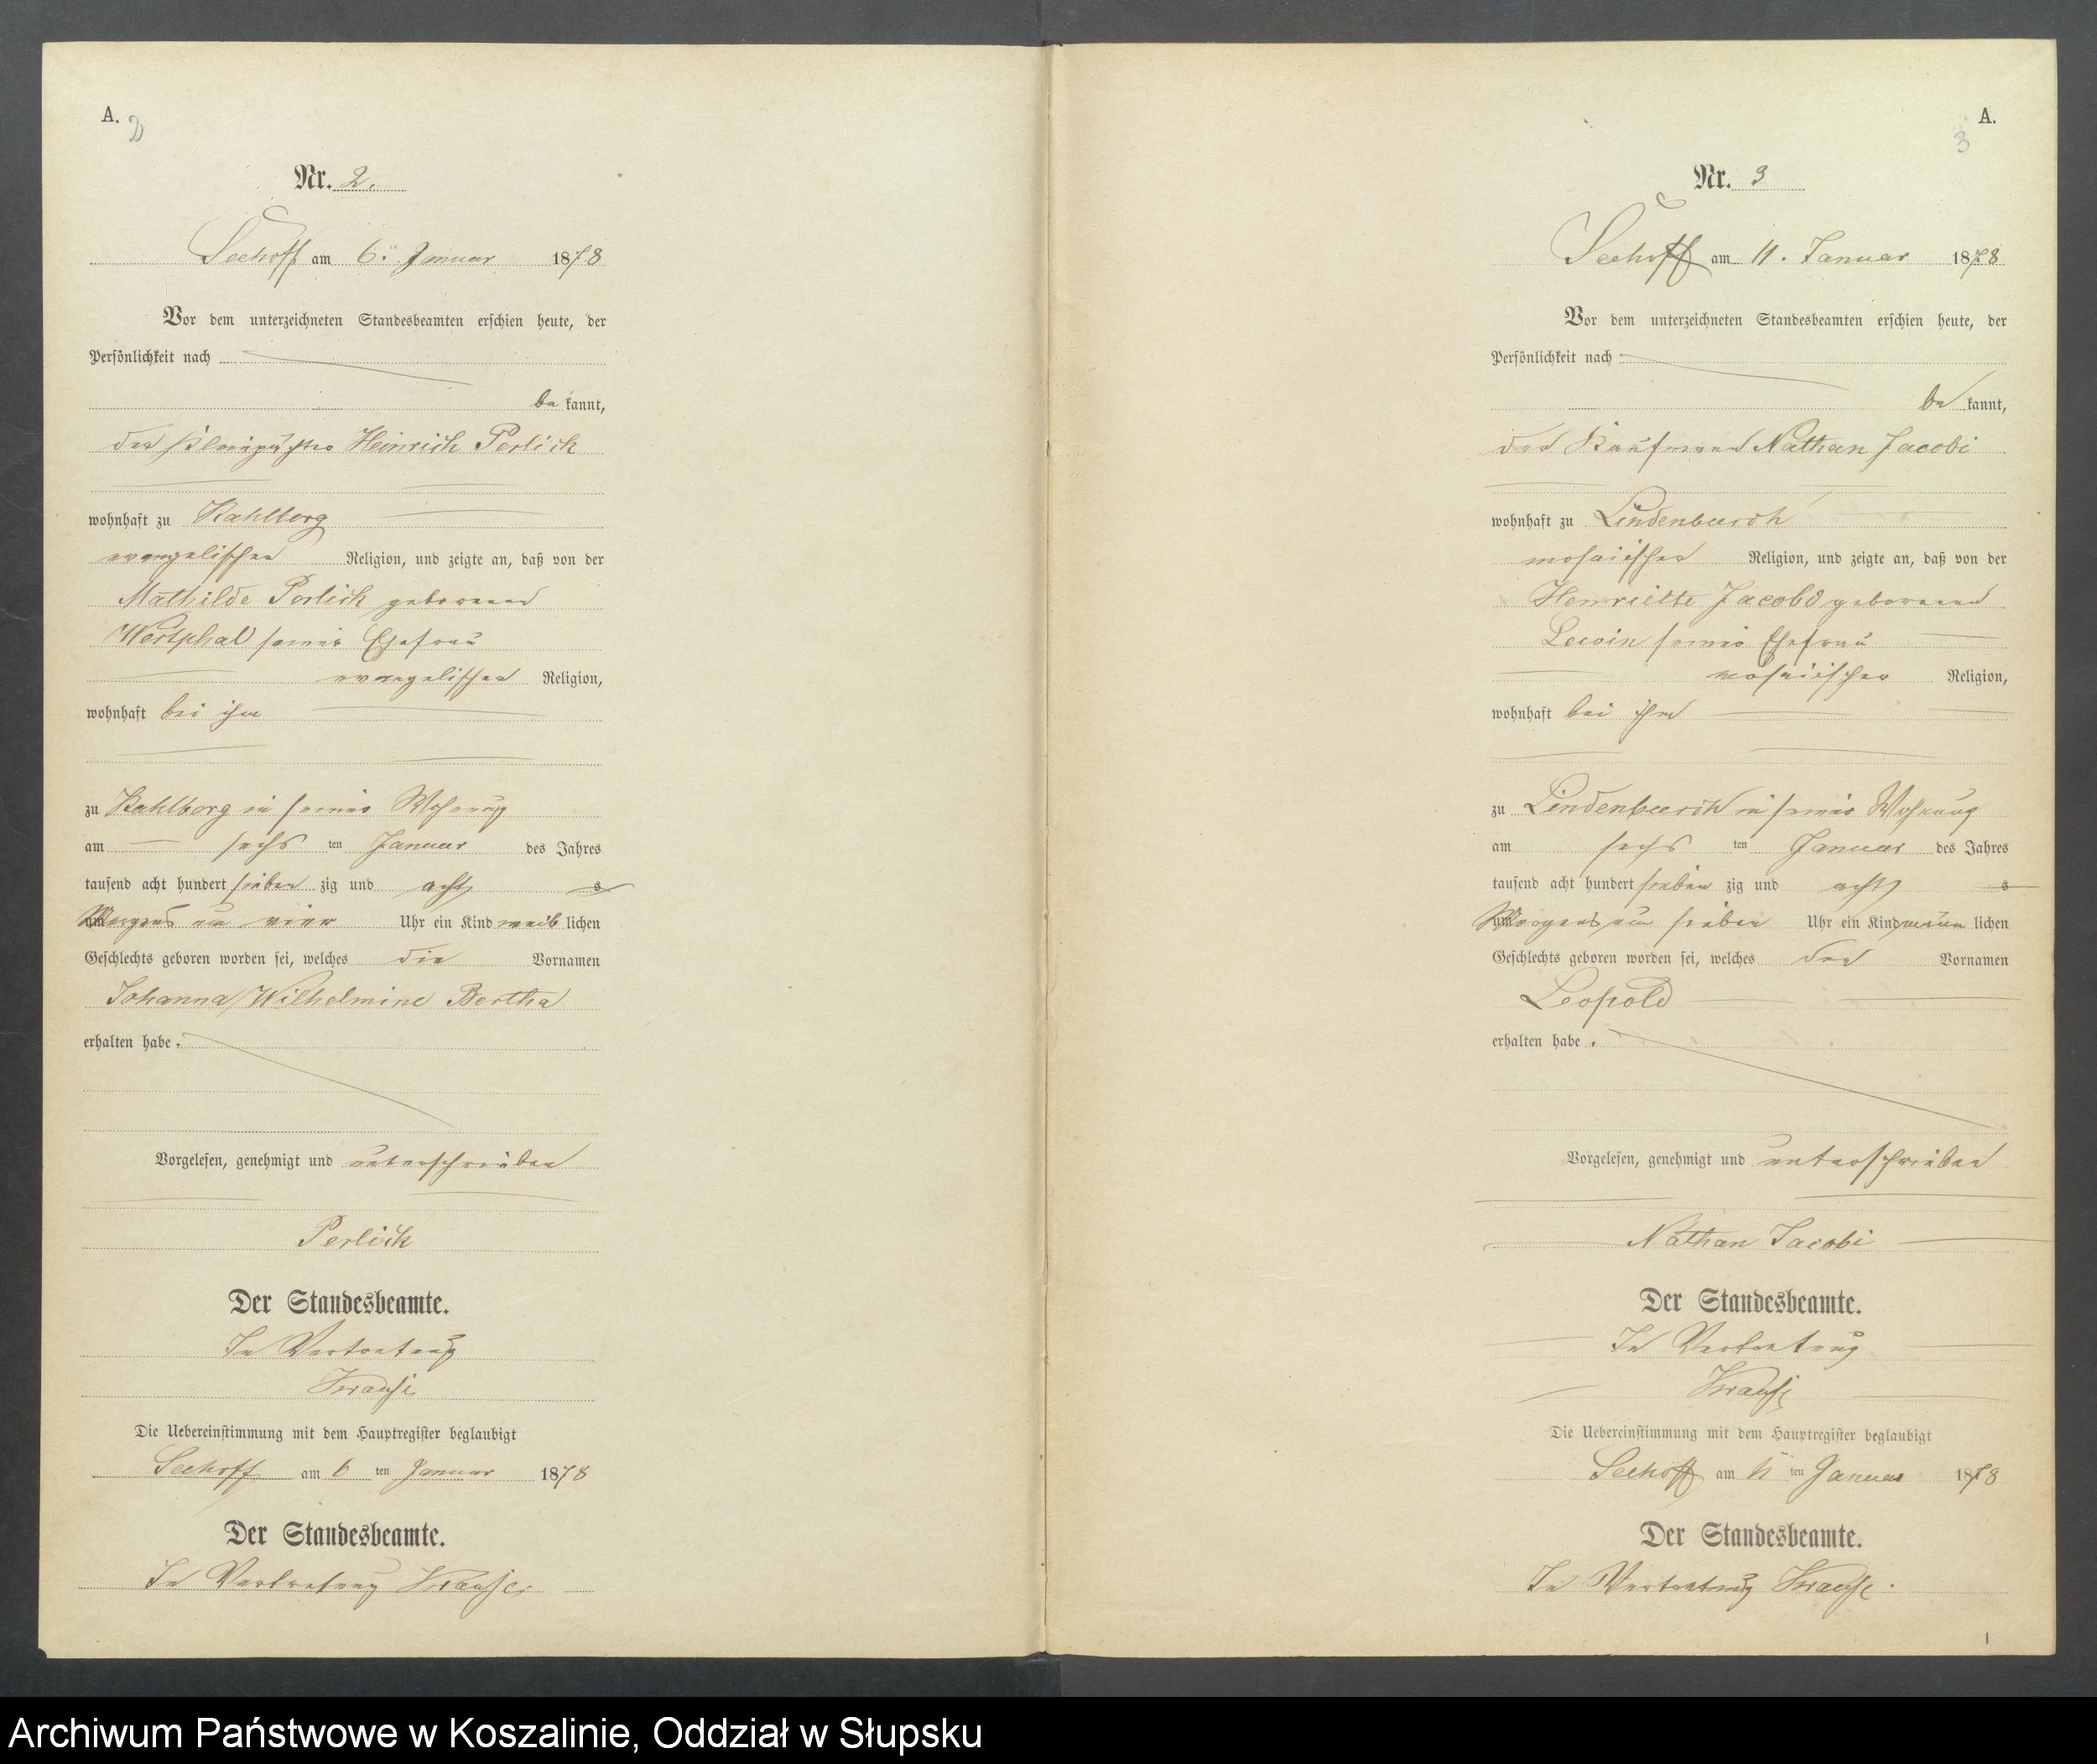 A.
2
Nr. 2.
Seehoff am 6. Januar 1878
Vor dem unterzeichneten Standesbeamten erschien heute, der
Persönlichkeit nach
be kannt,
der Heinrich Perlick
wohnhaft zu Kahlberg
evangelischer Religion, und zeigte an, daß von der
Mathilde Perlick geborenen
Westphal seiner Ehefrau
evangelischer Religion,
wohnhaft bei ihm
zu Kahlberg in seiner Wohnung
am sechs ten Januar des Jahres
tausend acht hundert sieben zig und acht s
Morgens um vier Uhr ein Kind weib lichen
Geschlechts geboren worden sei, welches die Vornamen
Johanna Wilhelmine Bertha
erhalten habe.
Vorgelesen, genehmigt und unterschrieben
Perlick
Der Standesbeamte.
In Vertretung
Krause
Die Uebereinstimmung mit dem Hauptregister beglaubigt
Seehoff am 6 ten Januar 1878
Der Standesbeamte.
In Vertretung Krause.
A.
3
Nr. 3
Seehoff am 11. Januar 1878
Vor dem unterzeichneten Standesbeamten erschien heute, der
Persönlichkeit nach
be kannt,
der Kaufmann Nathan Jacobi
wohnhaft zu Lindenbusch
mosaischer Religion, und zeigte an, daß von der
Henriette Jacobi geborenen
Lewin seiner Ehefrau
mosaischer Religion,
wohnhaft bei ihm
zu Lindenbusch in seiner Wohnung
am sechs ten Januar des Jahres
tausend acht hundert sieben zig und acht s
Morgens um sieben Uhr ein Kind männ lichen
Geschlechts geboren worden sei, welches den Vornamen
Leopold
erhalten habe.
Vorgelesen, genehmigt und unterschrieben
Nathan Jacobi
Der Standesbeamte.
In Vertretung
Krause
Die Uebereinstimmung mit dem Hauptregister beglaubigt
Seehoff am 11 ten Januar 1878
Der Standesbeamte.
In Vertretung Krause.
1
Archiwum Państwowe w Koszalinie, Oddział w Słupsku